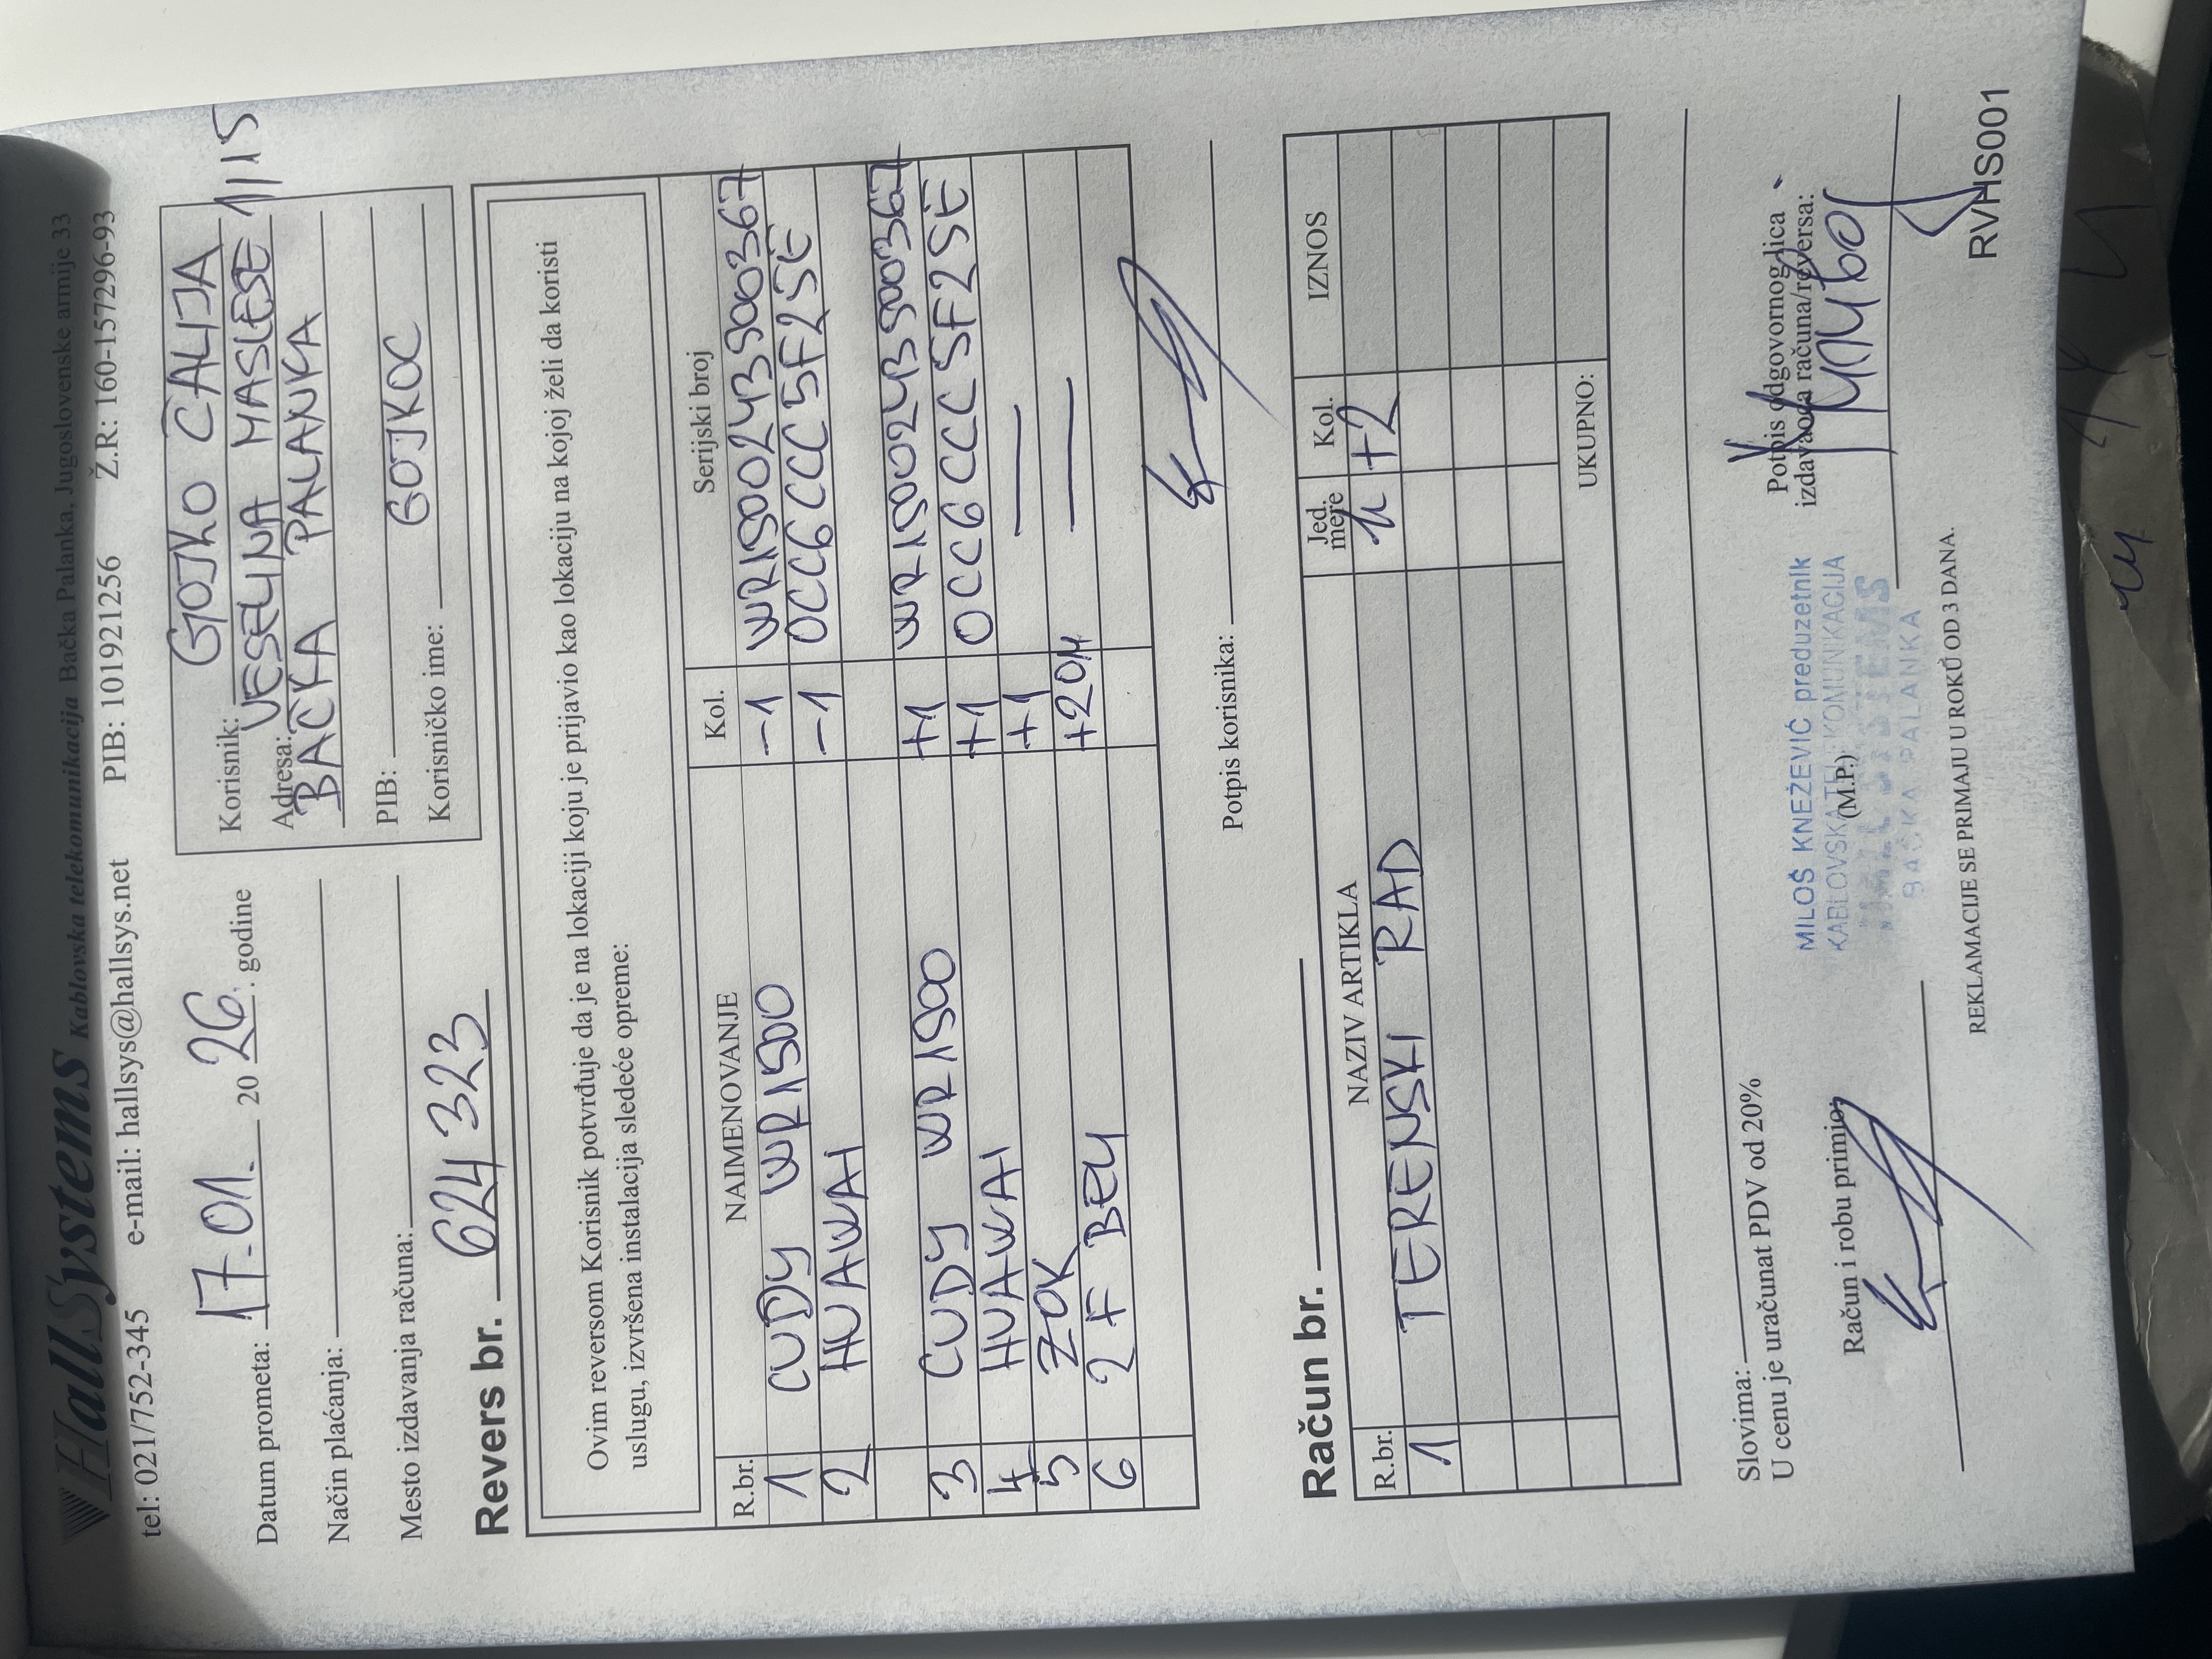 HallSystems Kablovska telekomunikacija Bačka Palanka, Jugoslovenske armije 33
tel: 021/752-345 e-mail: hallsys@hallsys.net PIB: 101921256 Ž.R: 160-157296-93
Datum prometa: 17.01. 2026. godine
Način plaćanja:
Mesto izdavanja računa:
Korisnik: GOJKO ĆALIJA
Adresa: VESELINA MASLEŠE 1/115
BAČKA PALANKA
PIB:
Korisničko ime: GOJKOC
Revers br. 624 323
Ovim reversom Korisnik potvrđuje da je na lokaciji koju je prijavio kao lokaciju na kojoj želi da koristi
uslugu, izvršena instalacija sledeće opreme:
R.br. NAIMENOVANJE Kol. Serijski broj
1 CUDY WR1500 -1 WR15002435000367
2 HUAWAI -1 0CC6CCC5F25E
3 CUDY WR1500 +1 WR15002435000367
4 HUAWAI +1 0CC6CCC5F25E
5 ZOK +1 —
6 2F BELI +20M —
Potpis korisnika:
Račun br.
R.br. NAZIV ARTIKLA Jed. mere Kol. IZNOS
1 TERENSKI RAD h +2
UKUPNO:
Slovima:
U cenu je uračunat PDV od 20%
Račun i robu primio:
MILOŠ KNEŽEVIĆ preduzetnik
KABLOVSKA TELEKOMUNIKACIJA
HALL SYSTEMS
BAČKA PALANKA
(M.P.)
Potpis odgovornog lica
izdavaoca računa/reversa:
REKLAMACIJE SE PRIMAJU U ROKU OD 3 DANA.
RVHS001